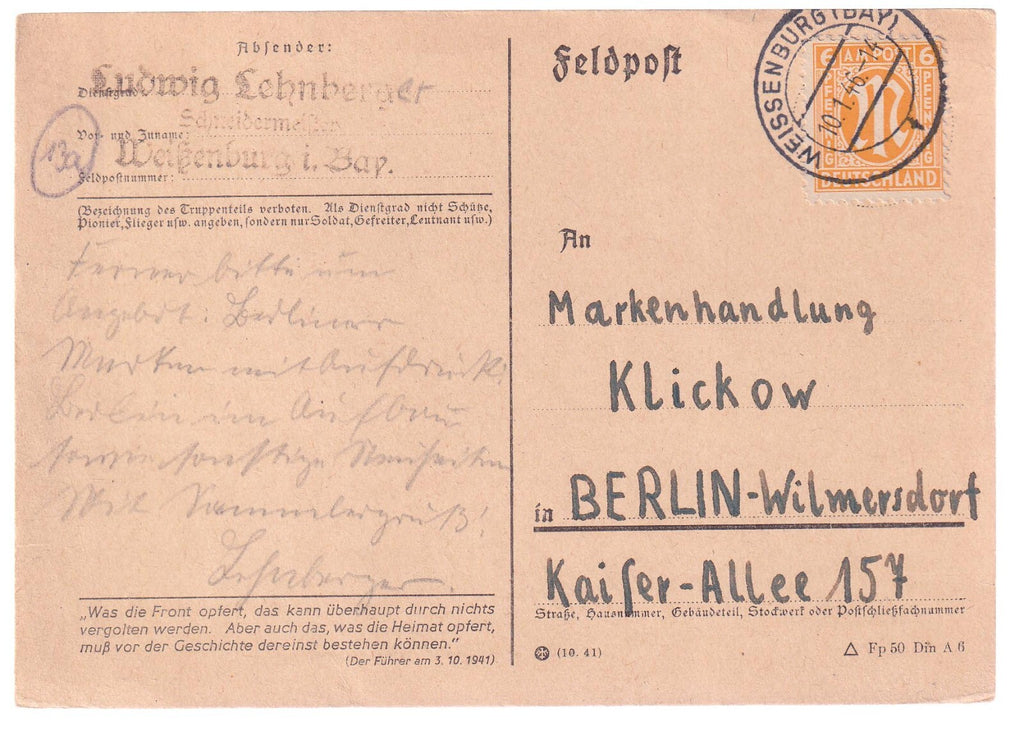 Absender:
Ludwig Lehnberger
Dienstgrad:
Schneidermeister
Vor- und Zuname:
Weißenburg i. Bay.
Feldpostnummer:
13a
(Bezeichnung des Truppenteils verboten. Als Dienstgrad nicht Schütze,
Pionier, Flieger usw. angeben, sondern nur Soldat, Gefreiter, Leutnant usw.)
Ferner bitte um
Angebot: Berliner
Marken mit Aufdruck:
Berlin im Aufbau
sowie sonstige Neuheiten
Mit Sammlergruß!
Lehnberger.
„Was die Front opfert, das kann überhaupt durch nichts
vergolten werden. Aber auch das, was die Heimat opfert,
muß vor der Geschichte dereinst bestehen können.“
(Der Führer am 3. 10. 1941)
Feldpost
WEISSENBURG (BAY)
10.1.46.-14
6 AM POST 6
PFENNIG
PFENNIG
M
DEUTSCHLAND
An
Markenhandlung
Klickow
in BERLIN-Wilmersdorf
Kaiser-Allee 157
Straße, Hausnummer, Gebäudeteil, Stockwerk oder Postschließfachnummer
(10. 41)
Fp 50 Din A 6